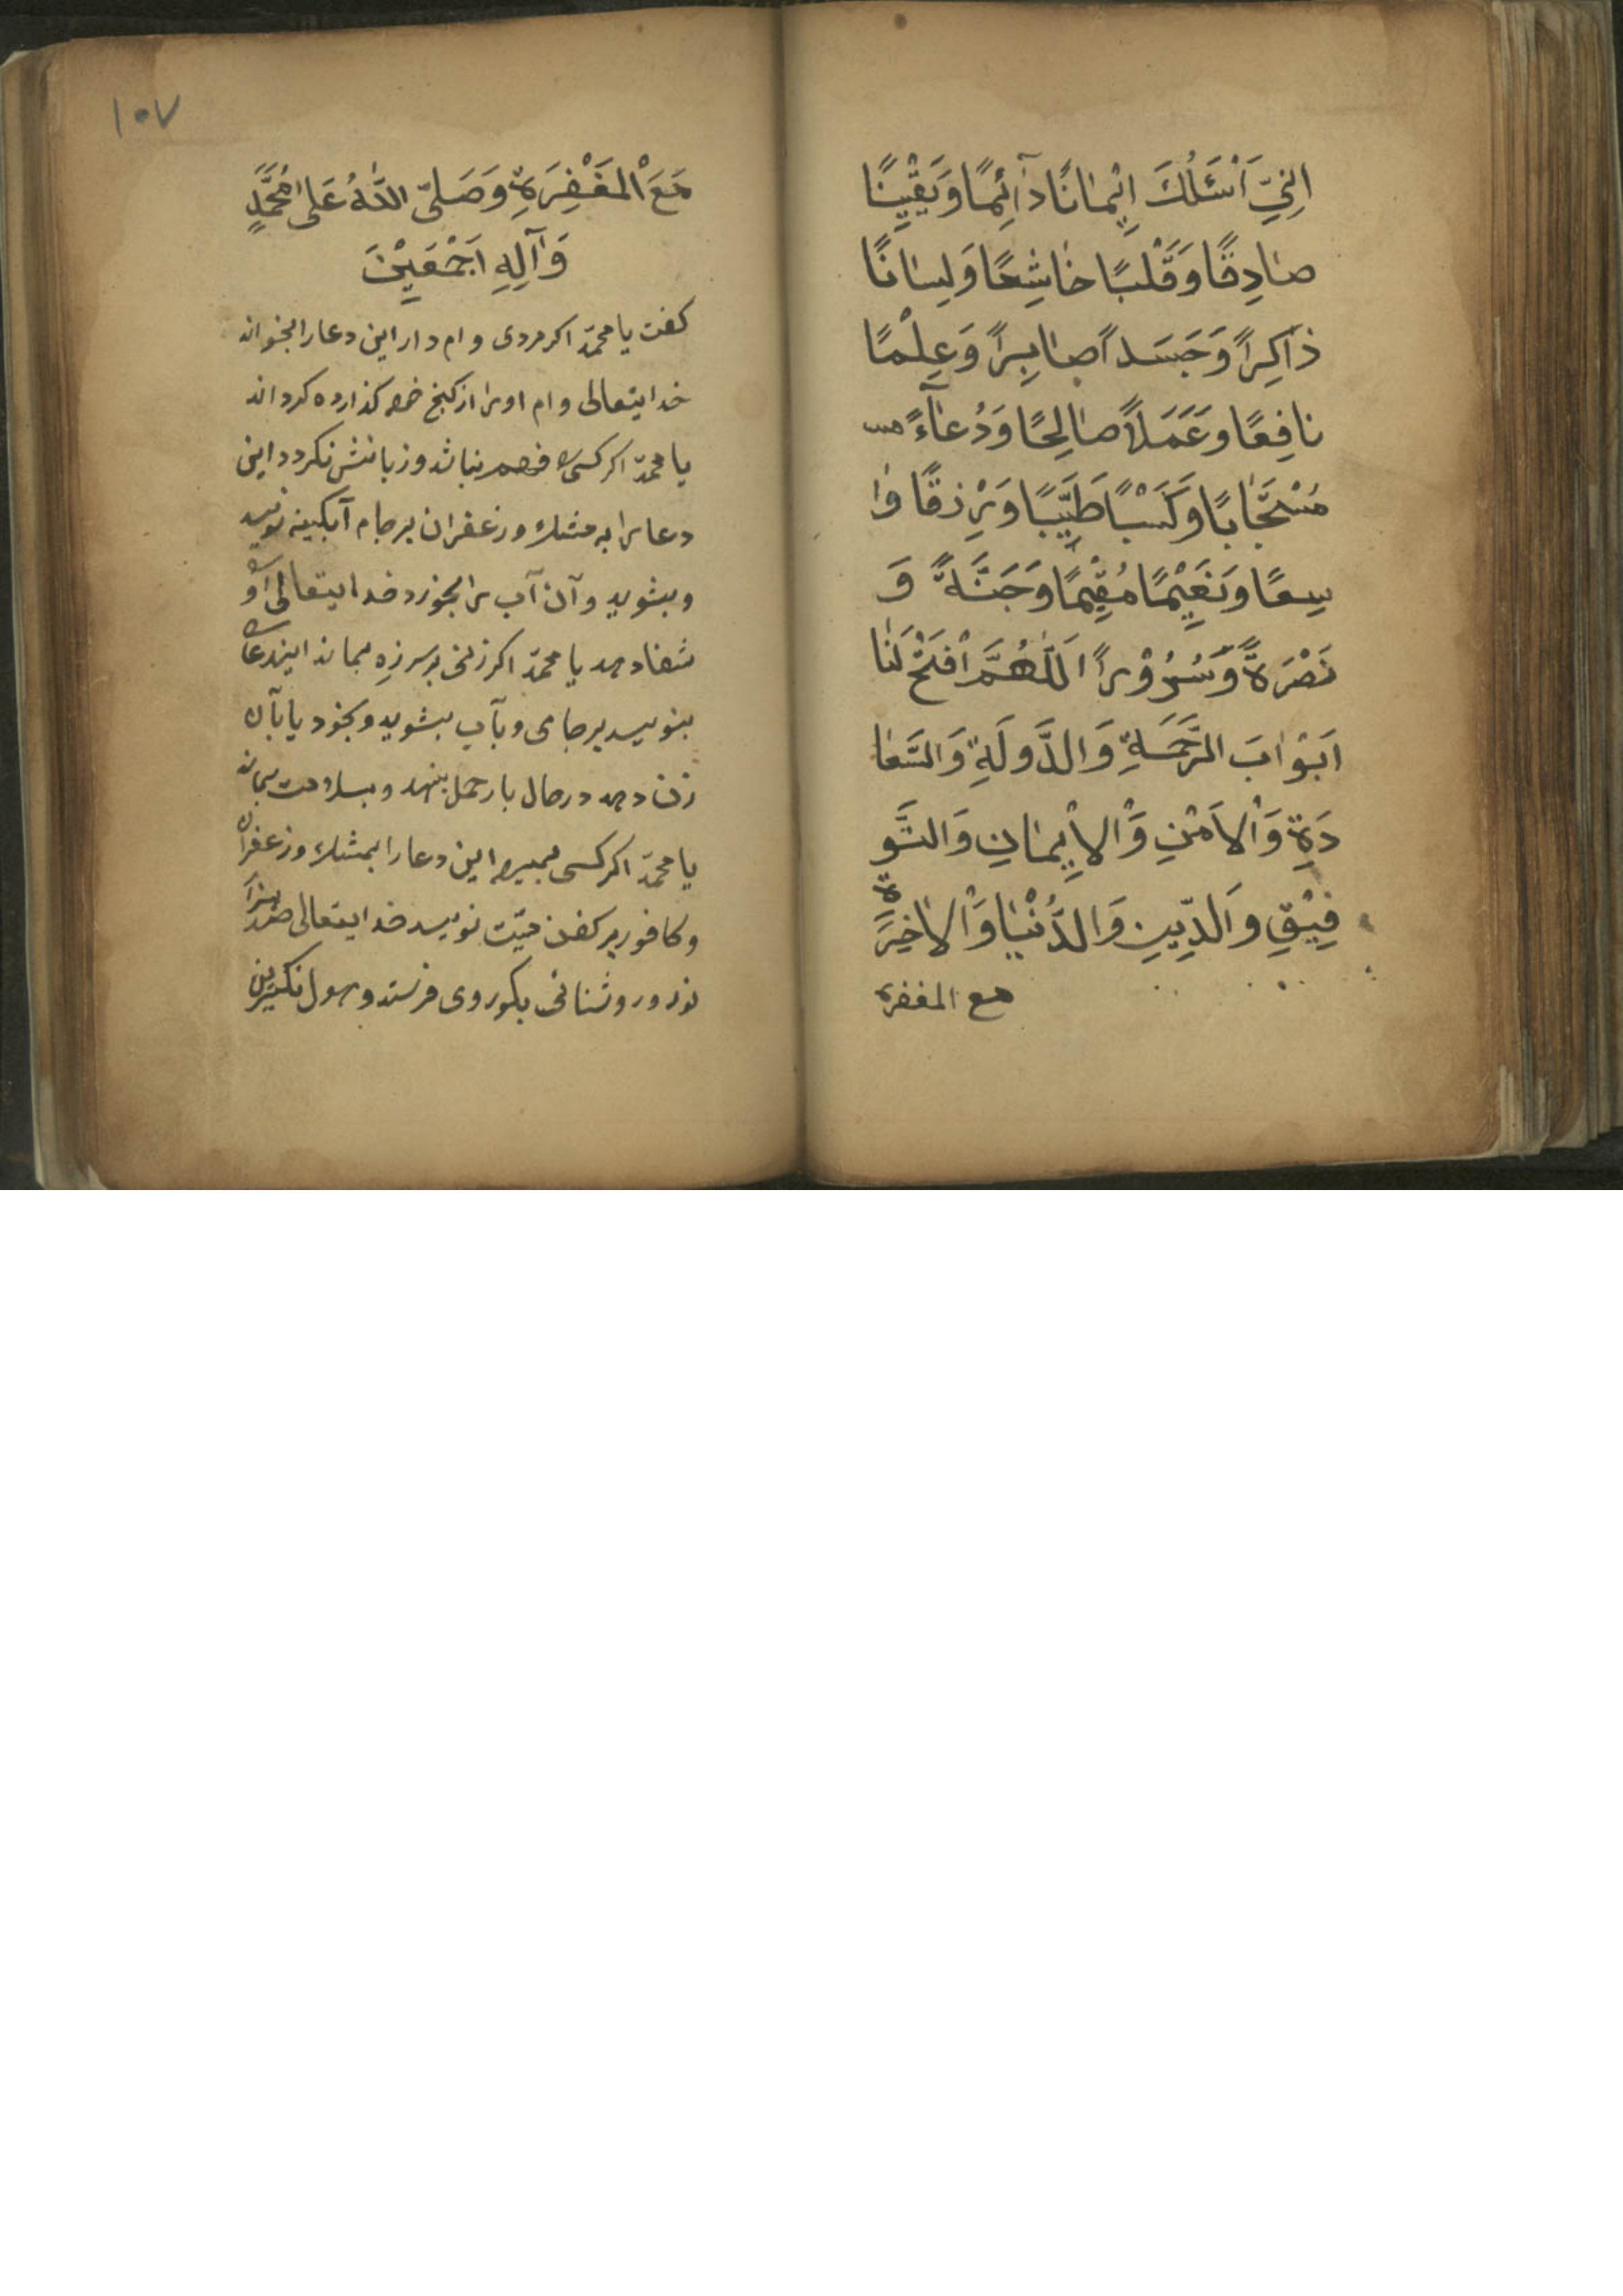 اِنِّيَ اَسْئَلُكَ اِیْمٰانًا دٰآئِمًا وَیَقِیْنًا
صٰادِقًا وَقَلْبًا خٰاشِعًا وَلِسٰانًا
ذٰاكِرًا وَجَسَدًا صٰابِرًا وَعِلْمًا
نٰافِعًا وَعَمَلًا صٰالِحًا وَدُعٰآءً مس
مُسْتَجٰابًا وَكَسْبًا طَیِّبًا وَرِزْقًا وٰا
سِعًا وَنَعِیْمًا مُقِیْمًا وَجَنَّةً وَ
نَصْرَةً وَّسُرُوْرًا اَللّٰهُمَّ افْتَحْ لَنٰا
اَبْوٰابَ الرَّحْمَةِ وَالدَّولَةِ وَالسَّعٰا
دَةِ وَالْاَمْنِ وَالْاِیمٰانِ وَالتَّو
فِیْقِ وَالدِّیْنِ وَالدُّنْیٰا وَالْاٰخِرَةِ
مع المغفرة
١٠٧
مَعَ الْمَغْفِرَةِ وَصَلَّی اللّٰهُ عَلیٰ مُحَمَّدٍ
وَآلِهِ اَجْمَعِیْنَ
كفت یا محمّد اكر مردی وام دار این دعا را بخواند
خدایتعالی وام اورا از كنج كذارده كرداند
یا محمّد اكر كسی نباشد و زبانش نكردد این
دعا را به مشك و زعفران بر جام آبكینه نویسد
وبشوید و آن آب را بخورد خدایتعالی اورا
شفا دهد یا محمّد اكر زنی بر سر زه بماند ایندعا
بنویسد بر جامی و بآب بشوید و بخورد یا بآن
زن دهد در حال بار حمل بنهد و بسلامت بماند
یا محمّد اكر كسی بمیرد این دعا را بمشك و زعفران
وكافور بر كفن میّت نویسد خدایتعالی صد هزار
نور و روشنائی بكور وی فرستد و هول نكیرین